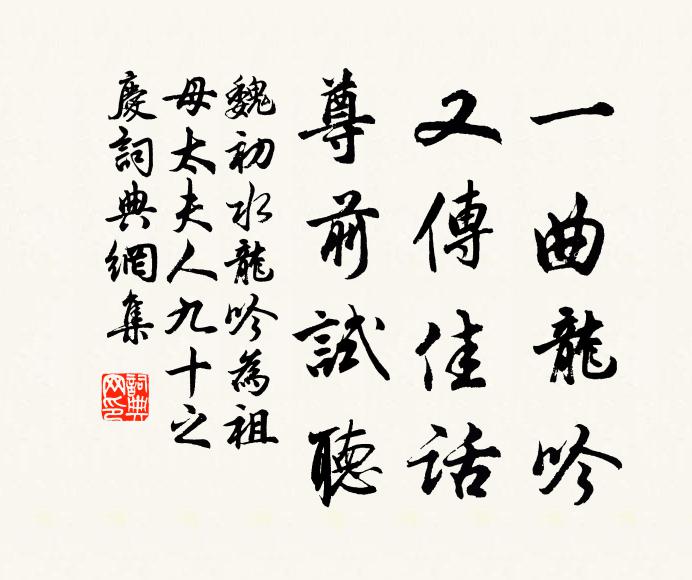 一曲龍吟
又傳佳話
尊前試聽
魏初水龍吟為祖
母太夫人九十之
慶詞典網集
詞典
网印